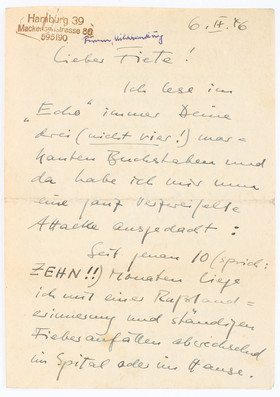 Hamburg 39
595190
6. IX. 46
Lieber Fiete!
Ich lese im
„Echo" immer Deine
drei (nicht vier!) mar=
kanten Buchstaben und
da habe ich mir nun
eine ganz verzweifelte
Attacke ausgedacht:
Seit genau 10 (sprich:
ZEHN!!) Monaten liege
ich mit einer Russland=
erinnerung und ständigen
Fieberanfällen abwechselnd
im Spital oder im Hause.